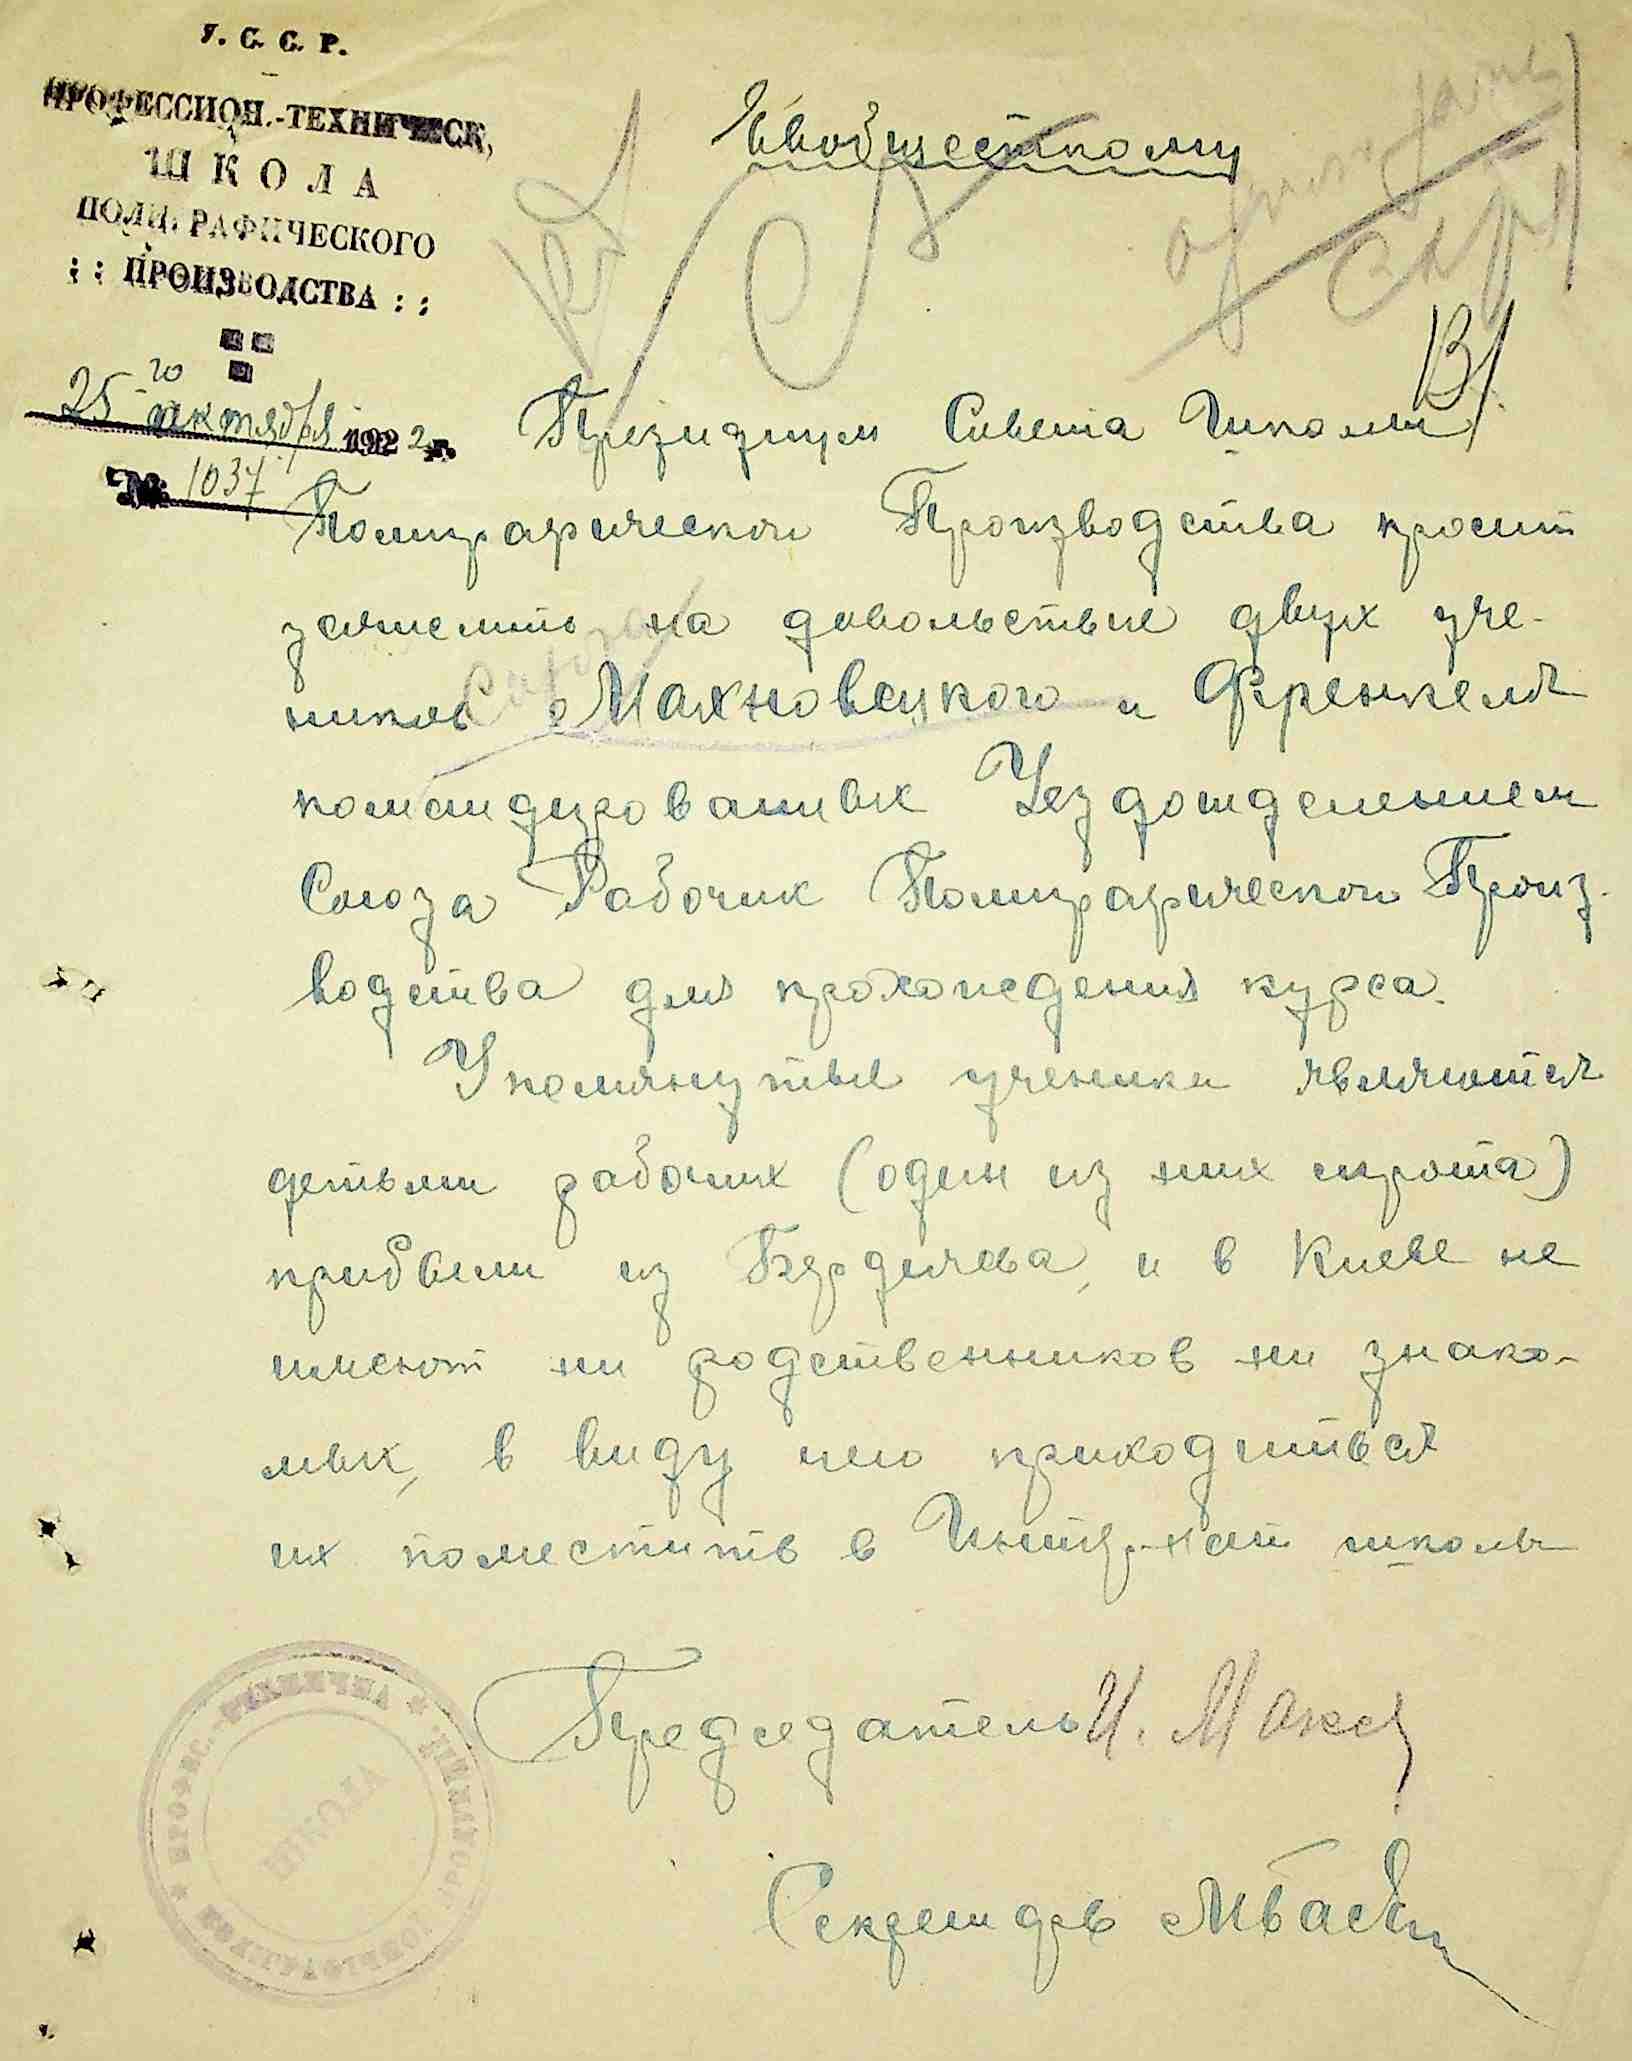 У. С. С. Р.
ПРОФЕССИОН.-ТЕХНИЧЕСК.
ШКОЛА
ПОЛИГРАФИЧЕСКОГО
:: ПРОИЗВОДСТВА ::
25-го октября 1922 г.
№ 1037
Президиум Совета Школы
Полиграфического Производства просит
зачислить на довольствие двух уче-
ников Махновецкого и Френкеля
командированных Уездотделением
Союза Рабочих Полиграфического Произ-
водства для прохождения курса.
Упомянутые ученики являются
детьми рабочих (один из них сирота)
прибыли из Бердичева, и в Киеве не
имеют ни родственников ни знако-
мых, в виду чего приходиться
их поместить в Интер-нат школы
Председатель И.
Секретарь
ШКОЛА